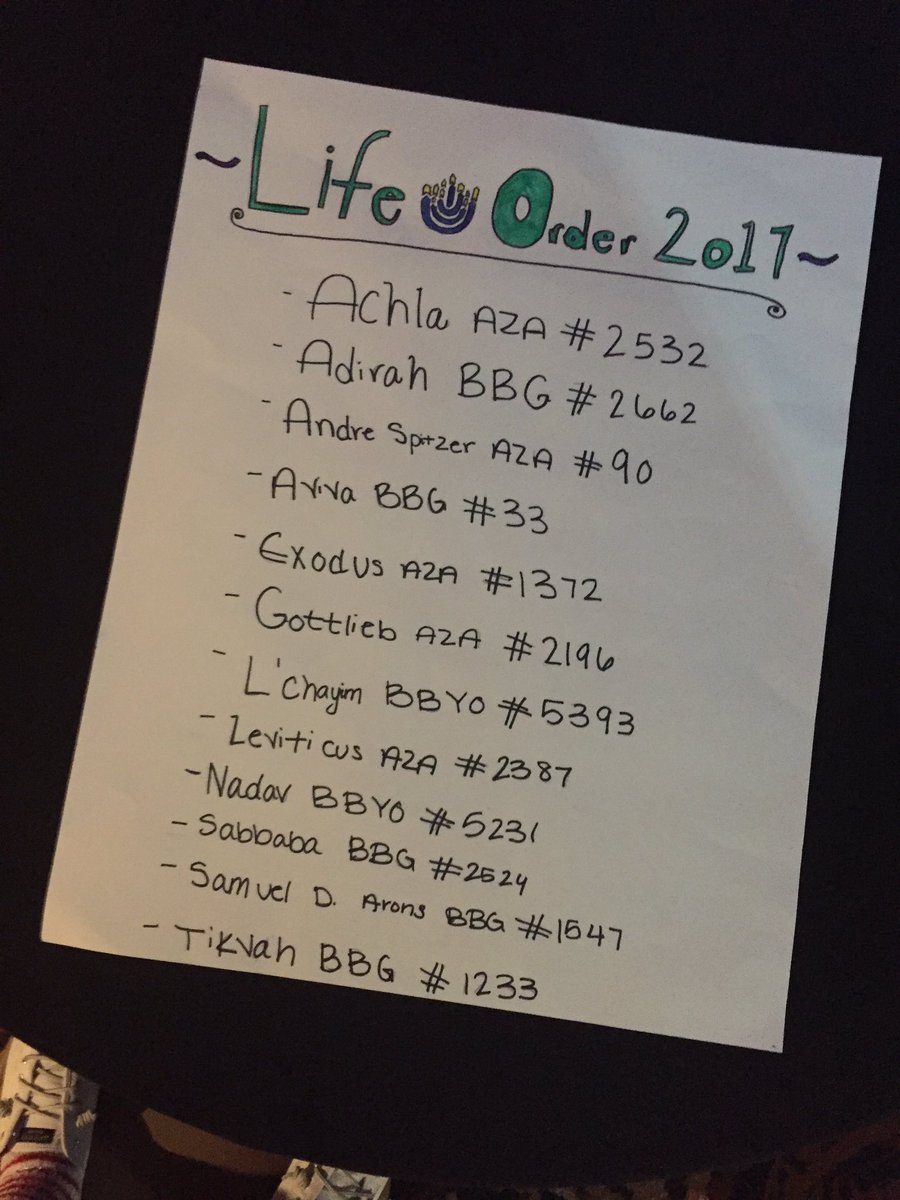 ~Life Order 2017~
- Achla AZA #2532
- Adirah BBG #2662
- Andre Spitzer AZA #90
- Aviva BBG #33
- Exodus AZA #1372
- Gottlieb AZA #2196
- L'chayim BBYO #5393
- Leviticus AZA #2387
- Nadav BBYO #5231
- Sabbaba BBG #2524
- Samuel D. Arons BBG #1547
- Tikvah BBG #1233